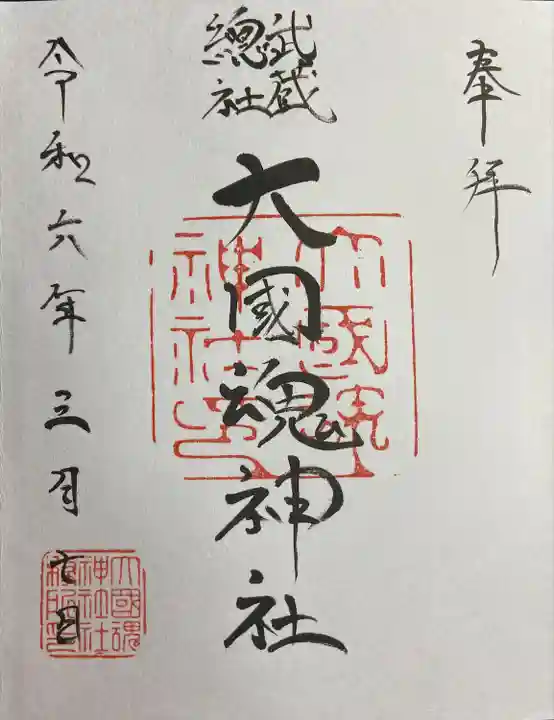 奉拝
武蔵
總社
大國魂神社
令和六年三月七日
大國魂
神社社
務所印